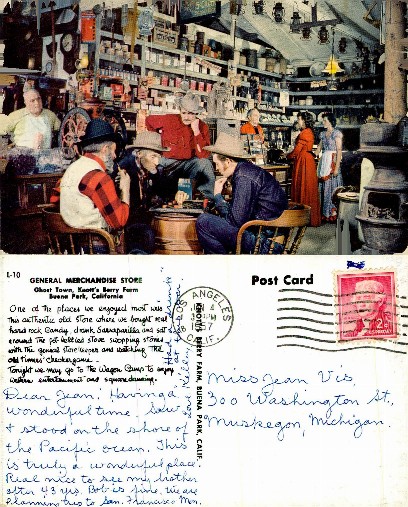 E-10
GENERAL MERCHANDISE STORE
Ghost Town, Knott's Berry Farm
Buena Park, California
One of the places we enjoyed most was
this authentic old Store where we bought real
hard rock Candy, drank Sarsaparilla and sat
around the pot-bellied stove swapping stories
with the general storekeeper and watching the
old timers' Checkergame.
Tonight we may go to the Wagon Camp to enjoy
western entertainment and squaredancing.
KNOTT'S BERRY FARM, BUENA PARK, CALIF.
Post Card
LOS ANGELES
CALIF.
2¢
Dear Jean: Having a
wonderful time. Saw
& stood on the shore of
the Pacific Ocean. This
is truly a wonderful place.
Real nice to see my brother
after 43 yrs. Bob is fine. We are
planning trip to San Francisco Mon.
Miss Jean Vis
300 Washington St.,
Muskegon, Michigan.